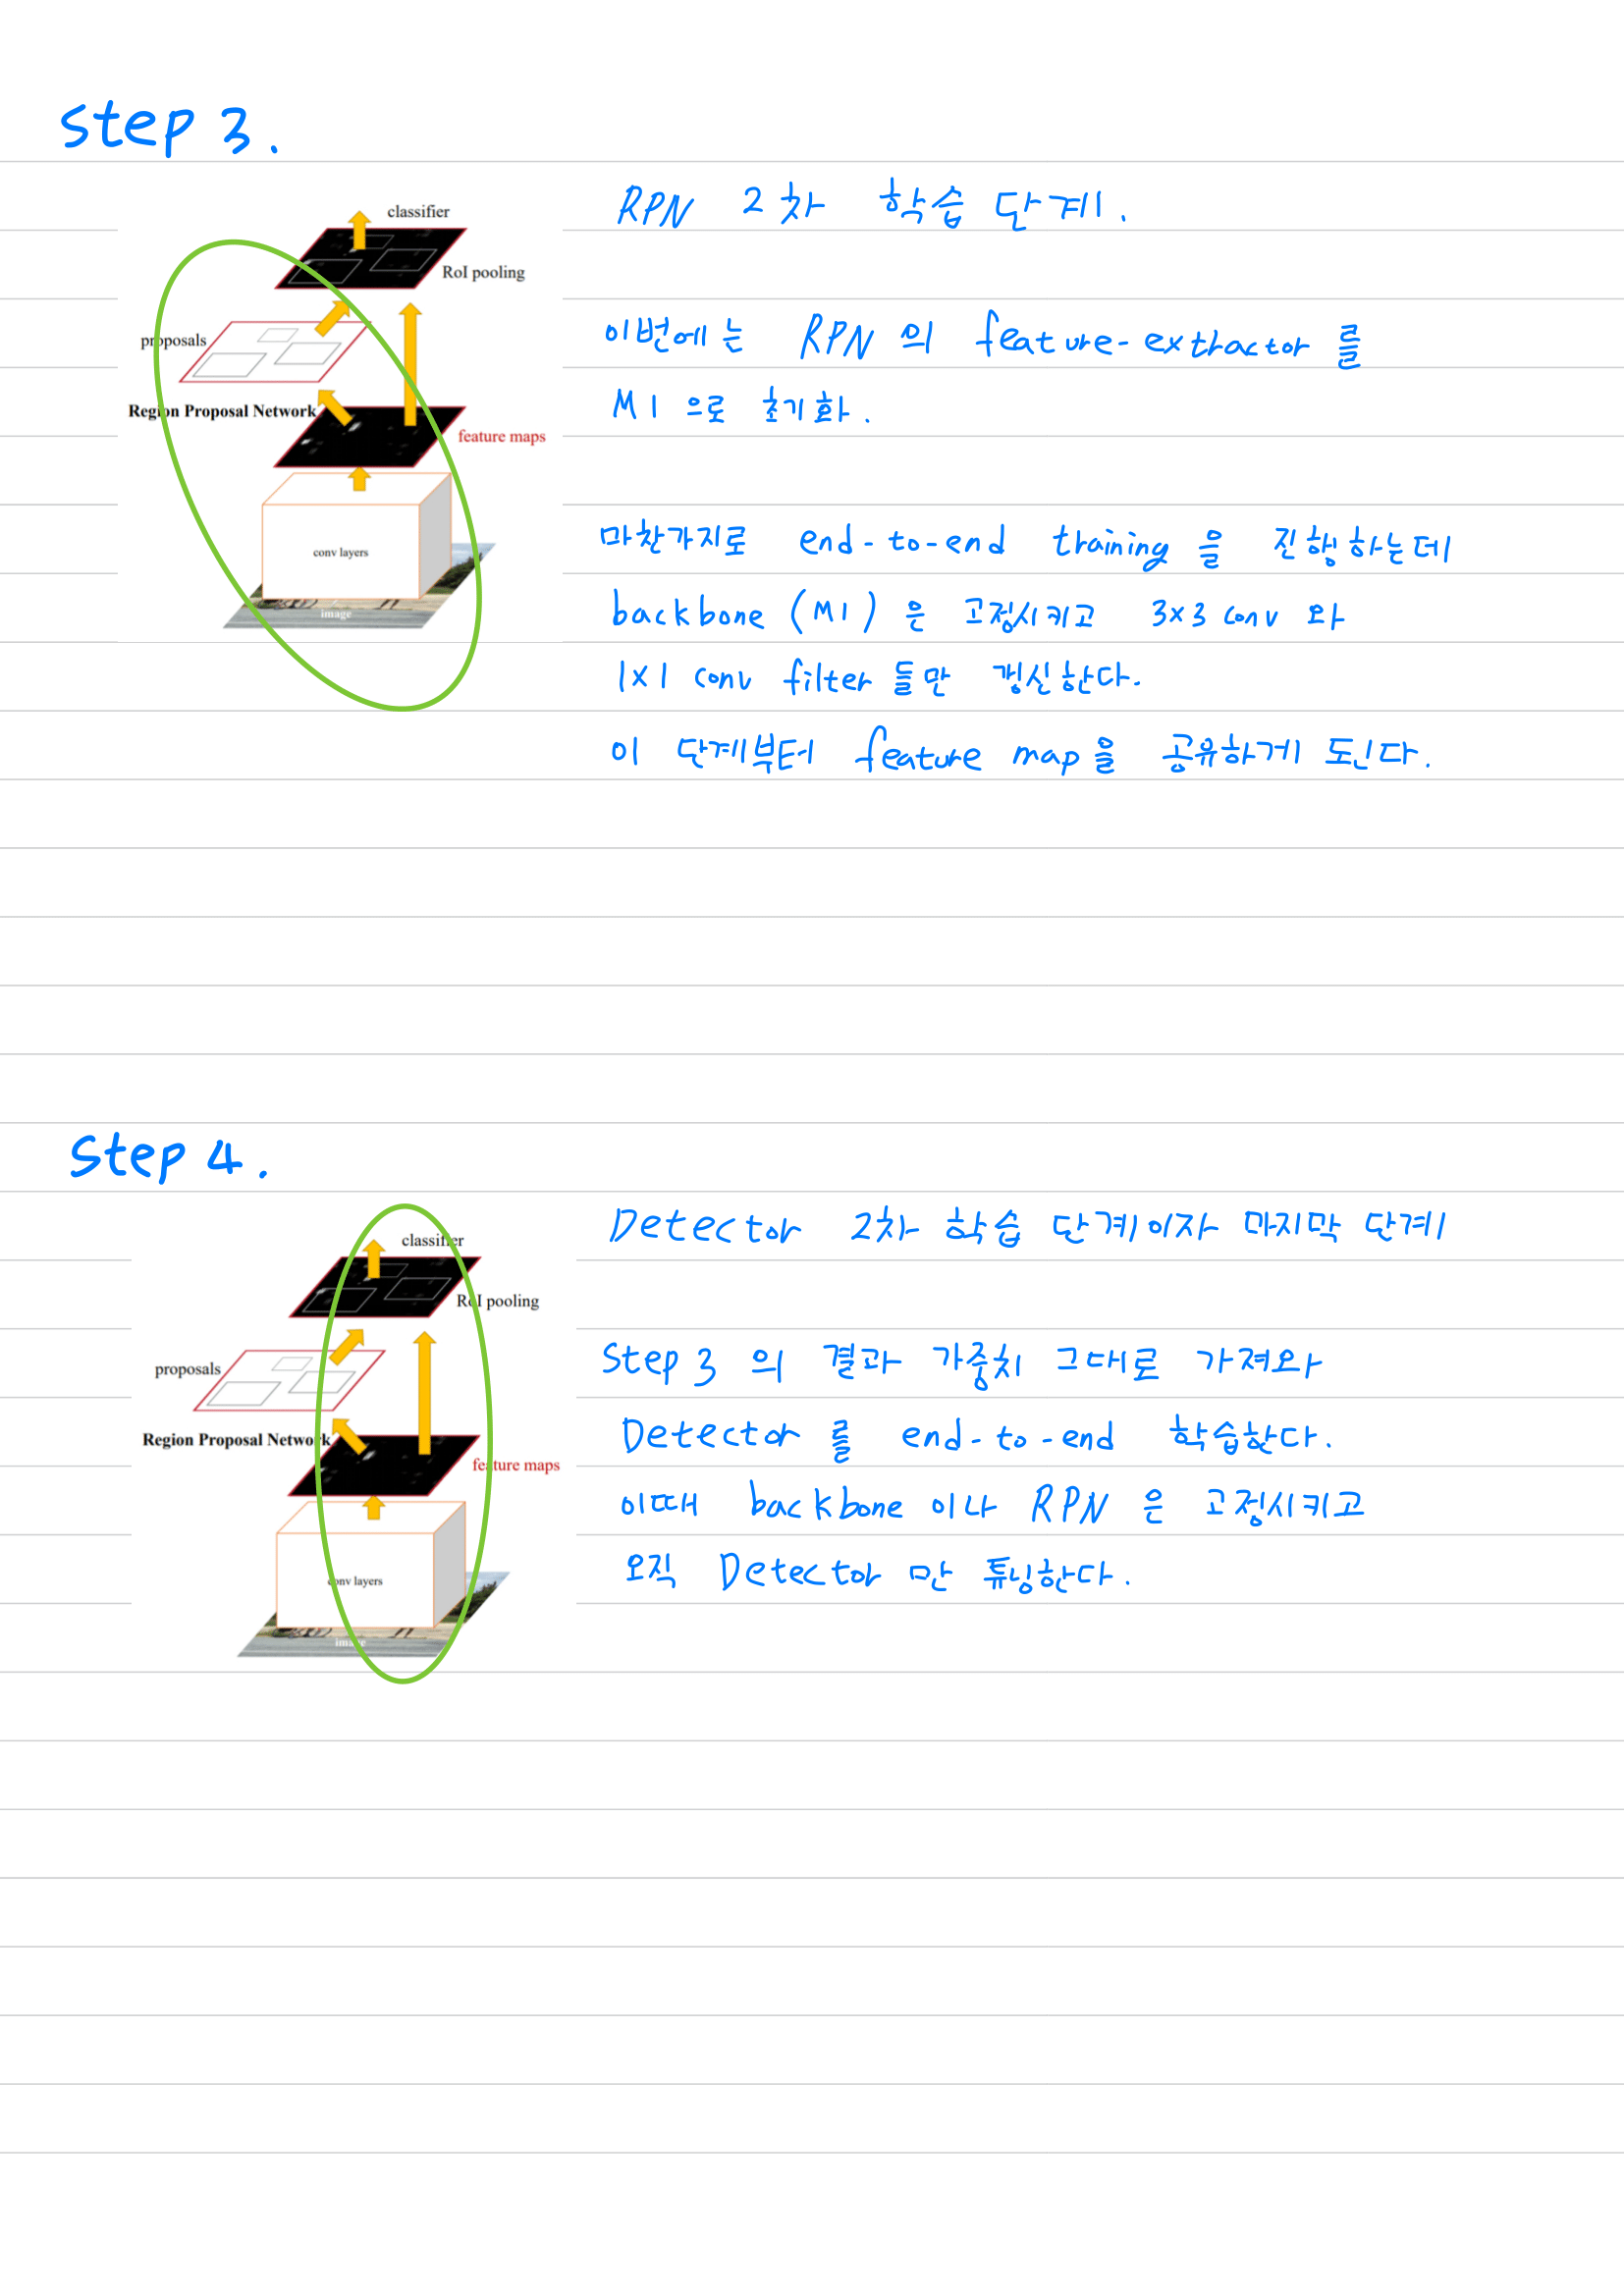 Step 3.
classifier
RoI pooling
proposals
Region Proposal Network
feature maps
conv layers
image
RPN 2차 학습 단계.
이번에는 RPN의 feature-extractor를
M1으로 초기화.
마찬가지로 end-to-end training을 진행하는데
backbone (M1)은 고정시키고 3x3 conv와
1x1 conv filter들만 갱신한다.
이 단계부터 feature map을 공유하게 된다.
Step 4.
classifier
RoI pooling
proposals
Region Proposal Network
feature maps
conv layers
image
Detector 2차 학습 단계이자 마지막 단계
Step 3의 결과 가중치 그대로 가져와
Detector를 end-to-end 학습한다.
이때 backbone이나 RPN은 고정시키고
오직 Detector만 튜닝한다.